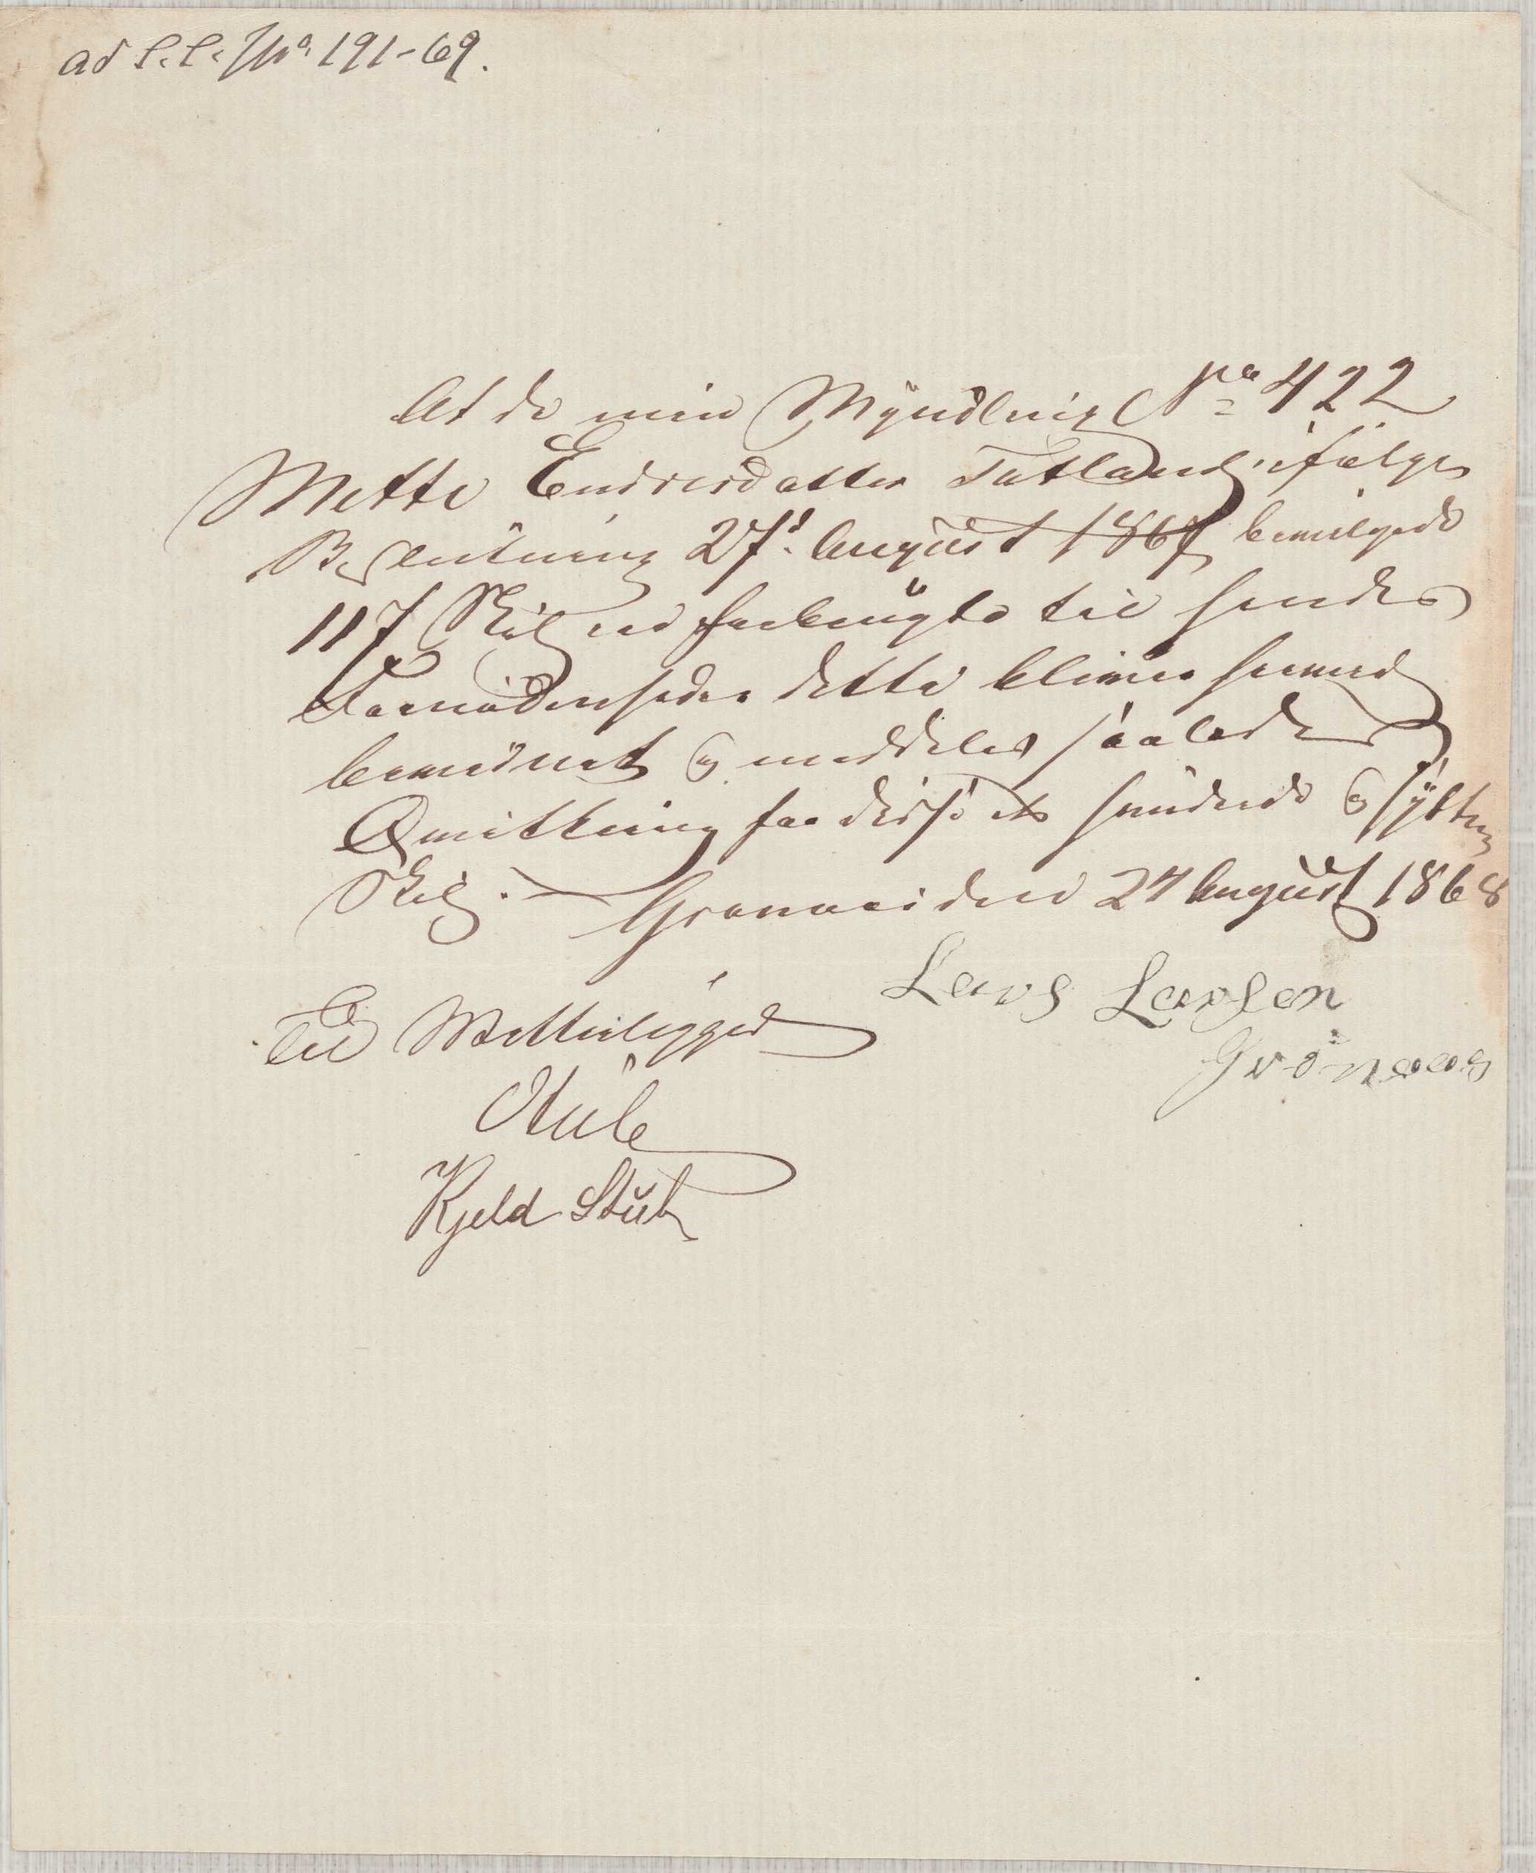 ad l. l. No 191-69.
At de min Myndling No 422
Mette Endresdatter Tutland ifølge
Beslutning 27d. August 1867 bevilgede
117 Skil er forbrugte til hendes
Fornødenheder dette bliver herved
bevidnet og meddeles saaledes
Qvittering for disse et hundrede og sytten
Skil. Grønnaas den 27 August 1868
Lars Larsen
Grönaas
Til Vitterlighed
Stub
Kjeld Stub